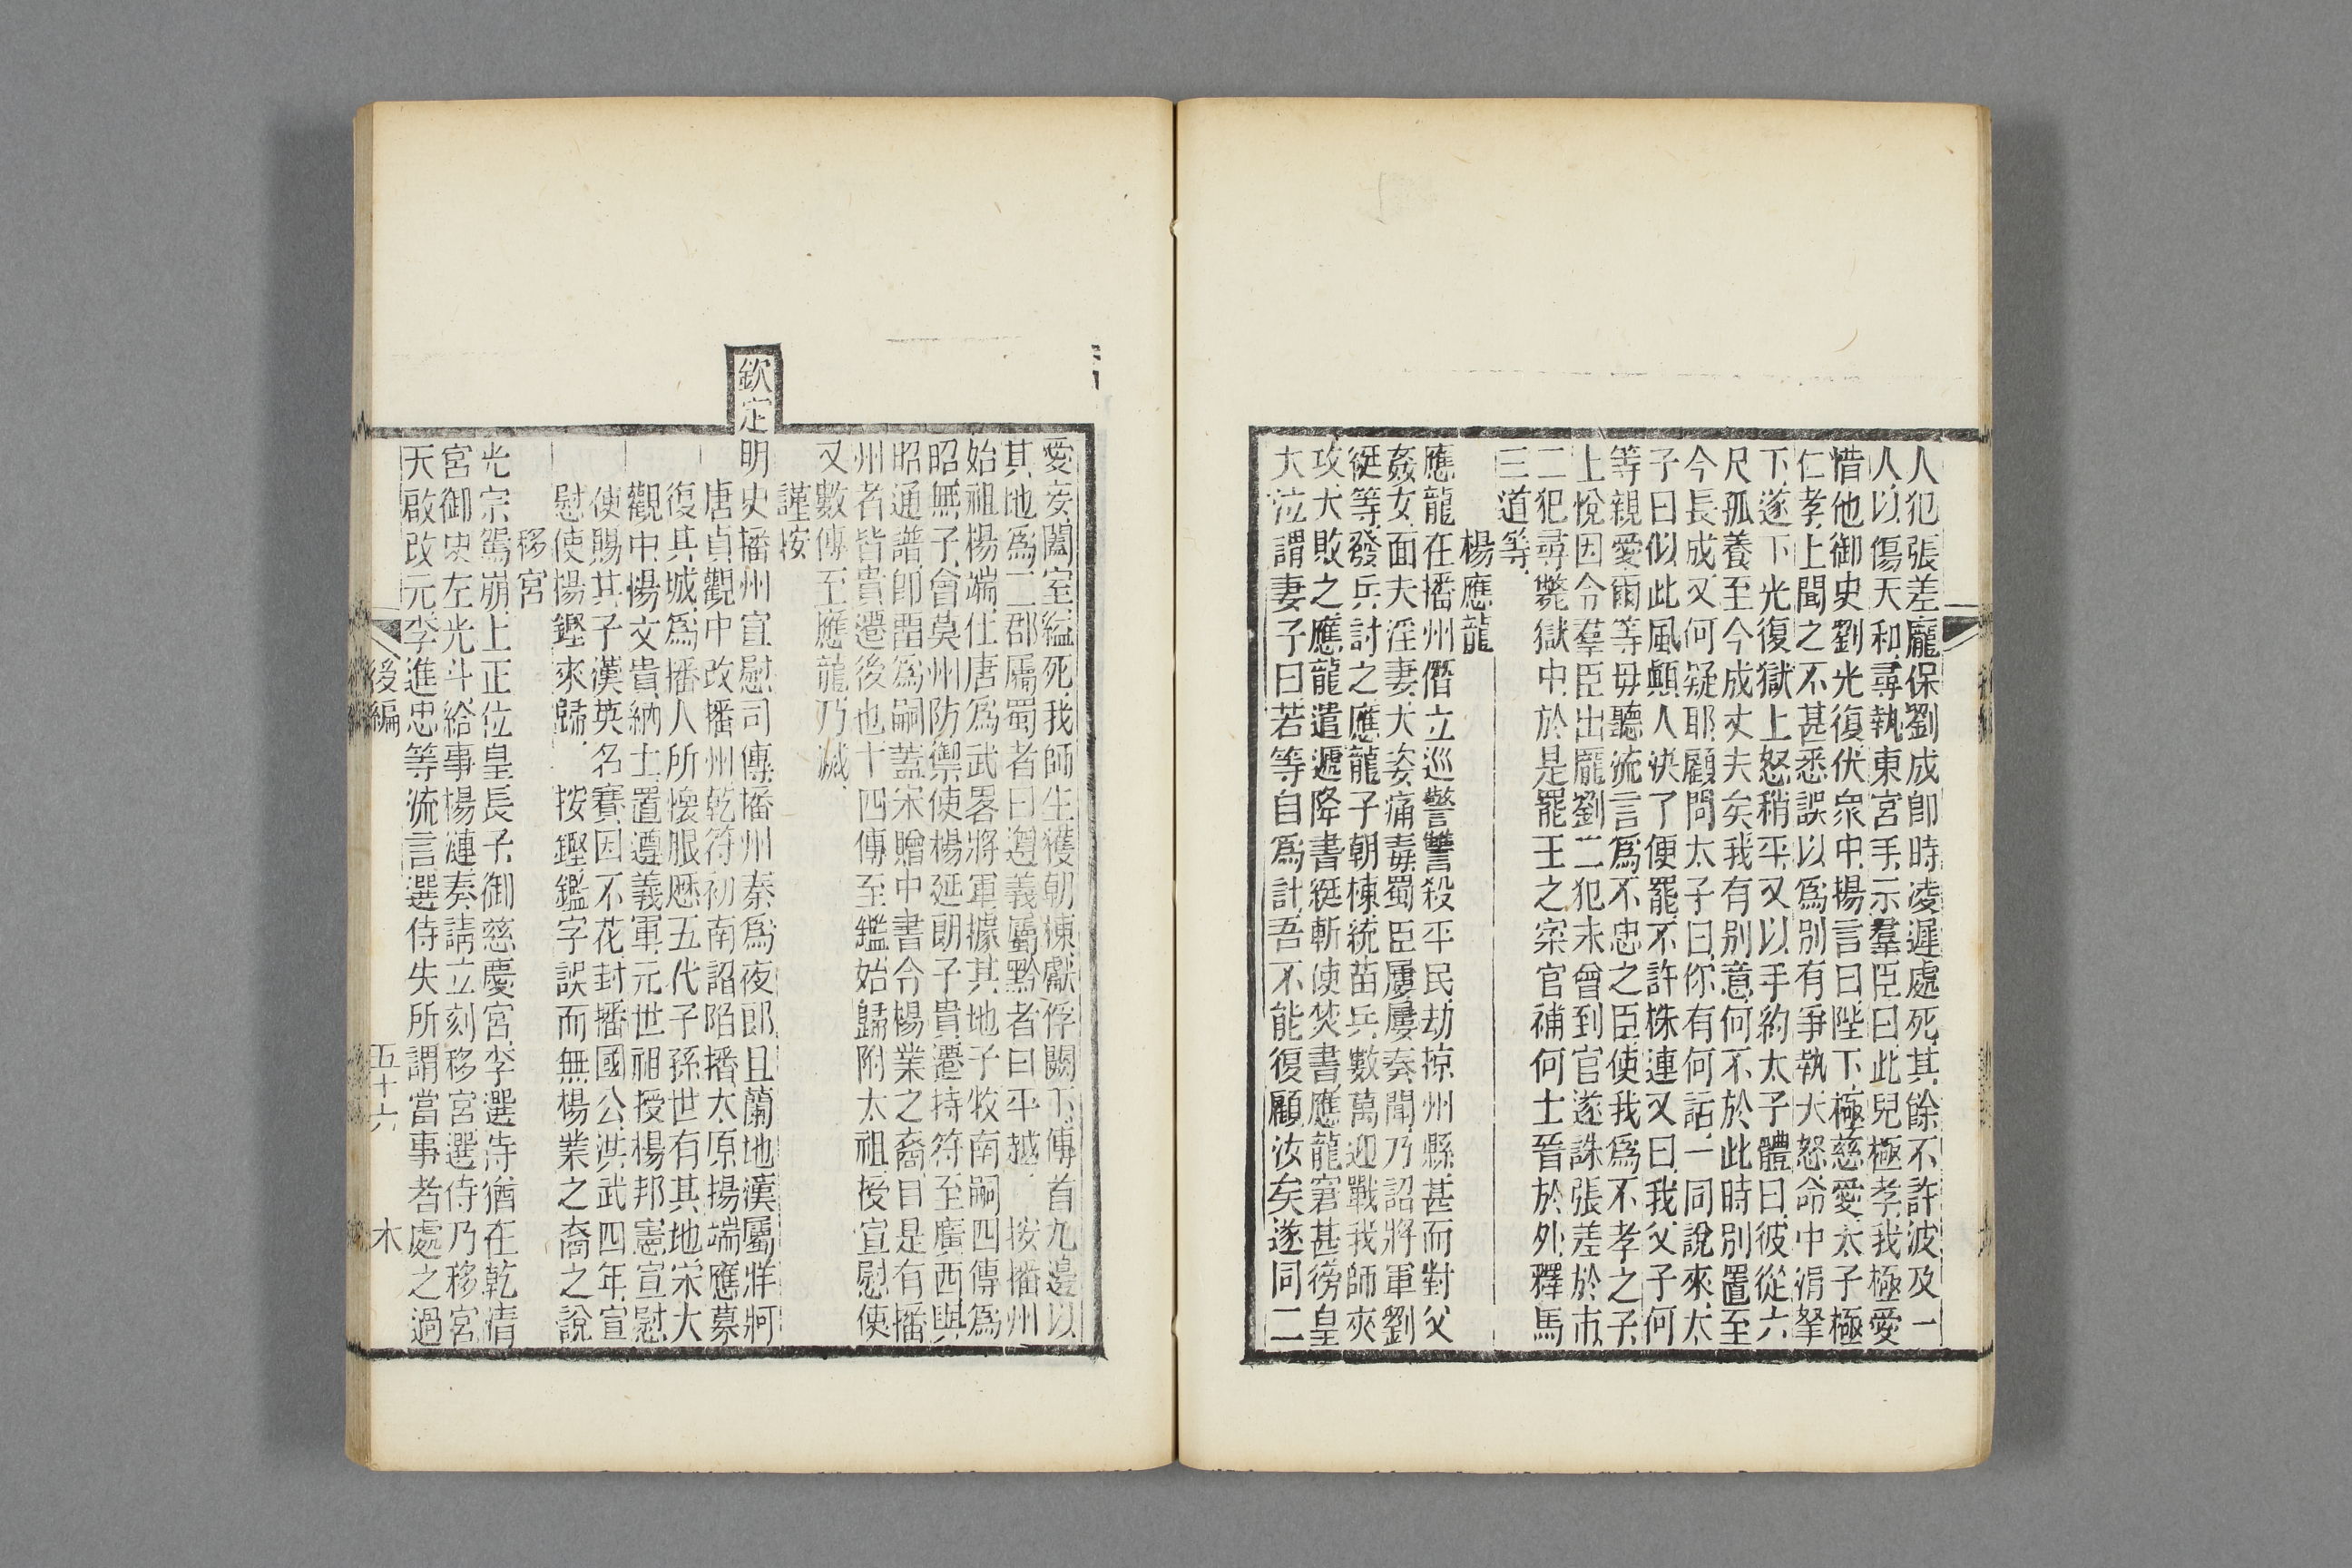 人犯張差龐保劉成卽時凌遲處死其餘不許波及一
人以傷天和尋執東宮手示羣臣曰此兒極孝我極愛
惜他御史劉光復伏衆中揚言曰陛下極慈愛太子極
仁孝上聞之不甚悉誤以爲別有爭執大怒命中涓拏
下遂下光復獄上怒稍平又以手約太子體曰彼從六
尺孤養至今成丈夫矣我有別意何不於此時別置至
今長成又何疑耶顧問太子曰你有何話一同說來太
子曰似此風顚人决了便罷不許株連又曰我父子何
等親愛爾等毋聽流言爲不忠之臣使我爲不孝之子
上悅因令羣臣出龐劉二犯未曾到官遂誅張差於市
二犯尋斃獄中於是罷王之寀官補何士晉於外釋馬
三道等
楊應龍
應龍在播州僭立巡警讐殺平民劫掠州縣甚而對父
姦女面夫淫妻大姿痛毒蜀臣屢屢奏聞乃詔將軍劉
綎等發兵討之應龍子朝棟統苗兵數萬迎戰我師夾
攻大敗之應龍遣遞降書綎斬使焚書應龍窘甚徬皇
大泣謂妻子曰若等自爲計吾不能復顧汝矣遂同二
愛妾闔室縊死我師生獲朝棟獻俘闕下傳首九邊以
其地爲二郡屬蜀者曰遵義屬黔者曰平越 按播州
始祖楊端仕唐爲武畧將軍據其地子牧南嗣四傳爲
昭無子會莫州防禦使楊延朗子貴遷持符至廣西與
昭通譜卽畱爲嗣蓋宋贈中書令楊業之裔自是有播
州者皆貴遷後也十四傳至鑑始歸附太祖授宣慰使
又數傳至應龍乃滅
謹按
欽定明史播州宣慰司傳播州秦爲夜郎且蘭地漢屬牂牁
唐貞觀中改播州乾符初南詔陷播太原揚端應募
復其城爲播人所懷服歷五代子孫世有其地宋大
觀中楊文貴納土置遵義軍元世祖授楊邦憲宣慰
使賜其子漢英名賽因不花封播國公洪武四年宣
慰使楊鏗來歸 按鏗鑑字誤而無楊業之裔之說
移宮
光宗駕崩上正位皇長子御慈慶宮李選侍猶在乾清
宮御史左光斗給事楊漣奏請立刻移宮選侍乃移宮
天啟改元李進忠等流言選侍失所謂當事者處之過
後編 五十六 木